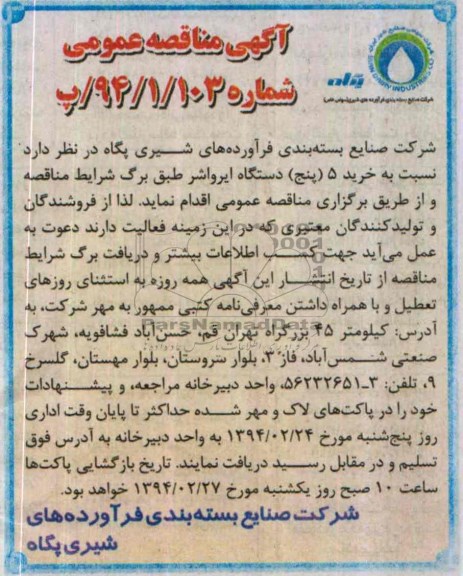 آگهی مناقصه عمومی
شماره ۹۴/۱/۱۰۳/پ
پگاه
شرکت صنایع بسته‌بندی فرآورده‌های شیری پگاه در نظر دارد
نسبت به خرید ۵ (پنج) دستگاه ایرواشر طبق برگ شرایط مناقصه
و از طریق برگزاری مناقصه عمومی اقدام نماید. لذا از فروشندگان
و تولیدکنندگان معتبری که در این زمینه فعالیت دارند دعوت به
عمل می‌آید جهت کسب اطلاعات بیشتر و دریافت برگ شرایط
مناقصه از تاریخ انتشار این آگهی همه روزه به استثنای روزهای
تعطیل و با همراه داشتن معرفی‌نامه کتبی ممهور به مهر شرکت، به
آدرس: کیلومتر ۴۵ بزرگراه تهران قم، حسن‌آباد فشافویه، شهرک
صنعتی شمس‌آباد، فاز ۳، بلوار سروستان، بلوار مهستان، گلسرخ
۹، تلفن: ۳-۵۶۲۳۲۶۵۱، واحد دبیرخانه مراجعه، و پیشنهادات
خود را در پاکت‌های لاک و مهر شده حداکثر تا پایان وقت اداری
روز پنج‌شنبه مورخ ۱۳۹۴/۰۲/۲۴ به واحد دبیرخانه به آدرس فوق
تسلیم و در مقابل رسید دریافت نمایند. تاریخ بازگشایی پاکت‌ها
ساعت ۱۰ صبح روز یکشنبه مورخ ۱۳۹۴/۰۲/۲۷ خواهد بود.
شرکت صنایع بسته‌بندی فرآورده‌های
شیری پگاه